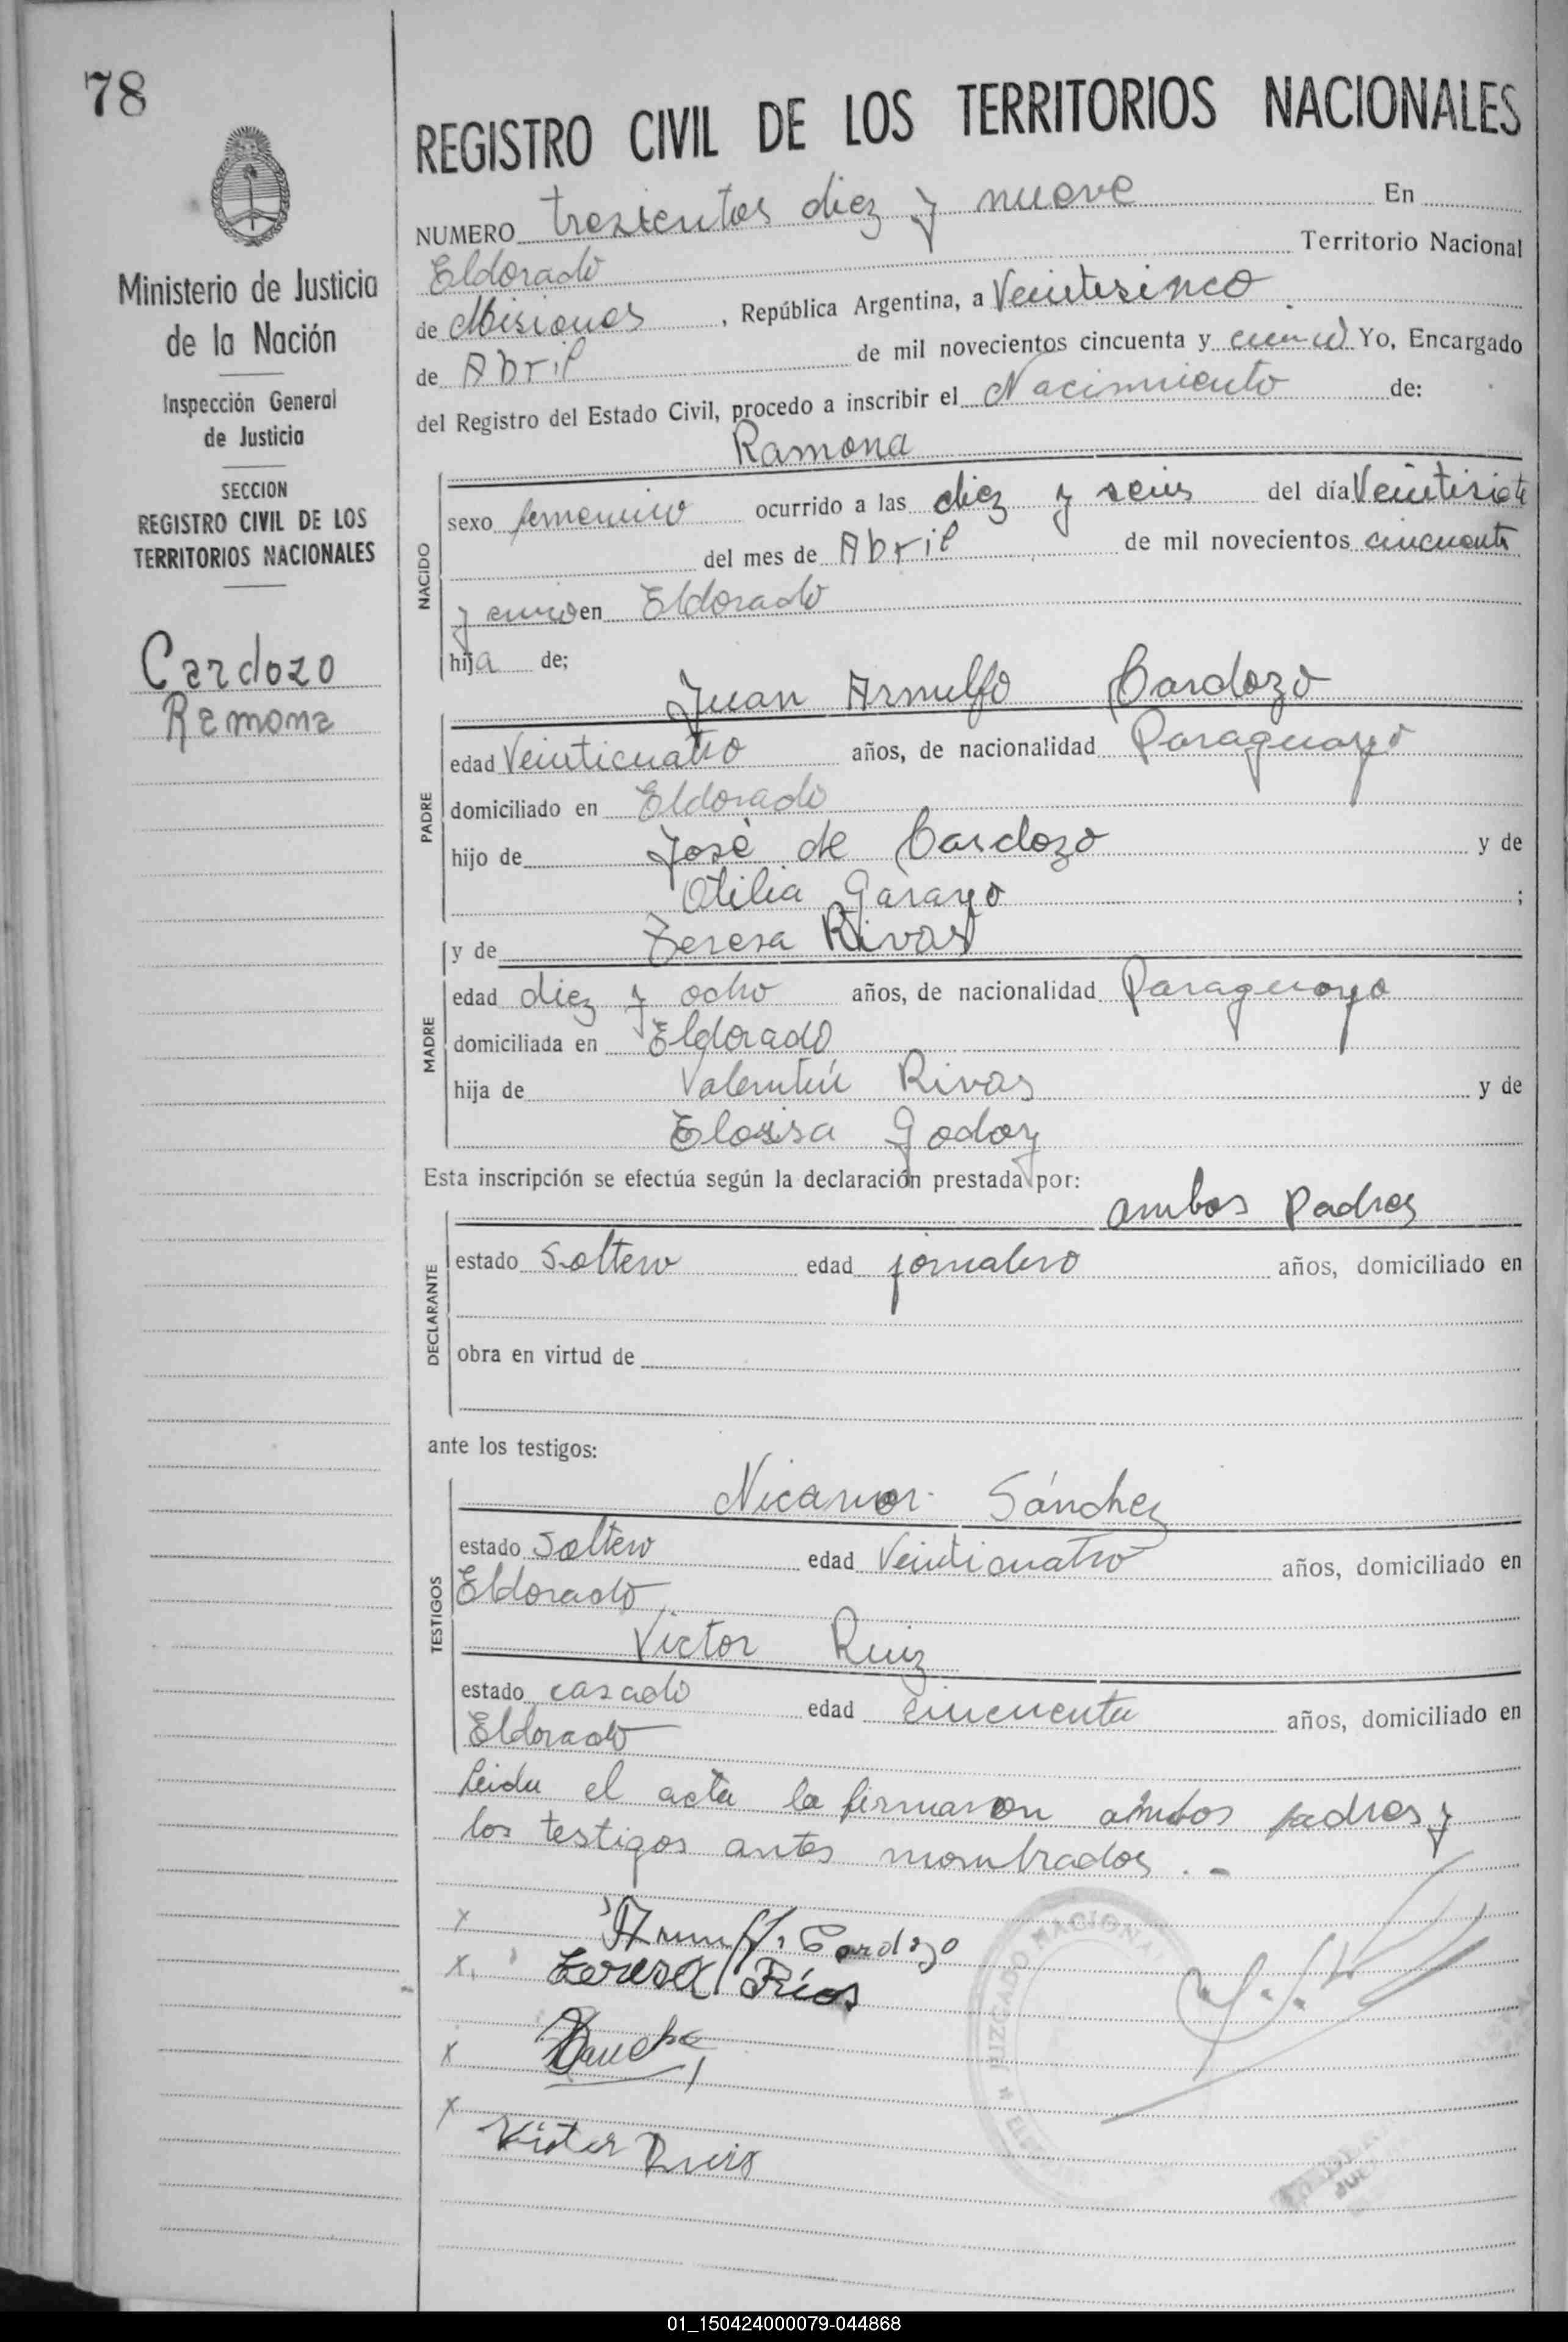 78
Ministerio de Justicia
de la Nación
Inspección General
de Justicia
SECCION
REGISTRO CIVIL DE LOS
TERRITORIOS NACIONALES
Cardozo
Ramona
REGISTRO CIVIL DE LOS TERRITORIOS NACIONALES
NUMERO tresientos diez y nueve En
Eldorado Territorio Nacional
de Misiones, República Argentina, a Veintesinco
de Abril de mil novecientos cincuenta y cinco Yo, Encargado
del Registro del Estado Civil, procedo a inscribir el Nacimiento de:
Ramona
NACIDO
sexo femenino ocurrido a las diez y seis del día Veintisiete
del mes de Abril de mil novecientos cincuenta
y cinco en Eldorado
hija de;
Juan Arnulfo Cardozo
PADRE
edad Veinticuatro años, de nacionalidad Paraguayo
domiciliado en Eldorado
hijo de José de Cardozo y de
Otilia Garayo ;
y de Teresa Rivas
MADRE
edad diez y ocho años, de nacionalidad Paraguaya
domiciliada en Eldorado
hija de Valentín Rivas y de
Eloisa Godoy
Esta inscripción se efectúa según la declaración prestada por:
ambos Padres
DECLARANTE
estado Soltero edad jornalero años, domiciliado en
obra en virtud de
ante los testigos:
Nicanor Sánchez
TESTIGOS
estado Soltero edad Veinticuatro años, domiciliado en
Eldorado
Victor Ruiz
estado casado edad cincuenta años, domiciliado en
Eldorado
Leida el acta la firmaron ambos padres y
los testigos antes mombrados . -
x Arnulfo Cardozo
x Teresa Ríos
x
x
Victor Ruiz
JUZGADO NACIONA
01_150424000079-044868